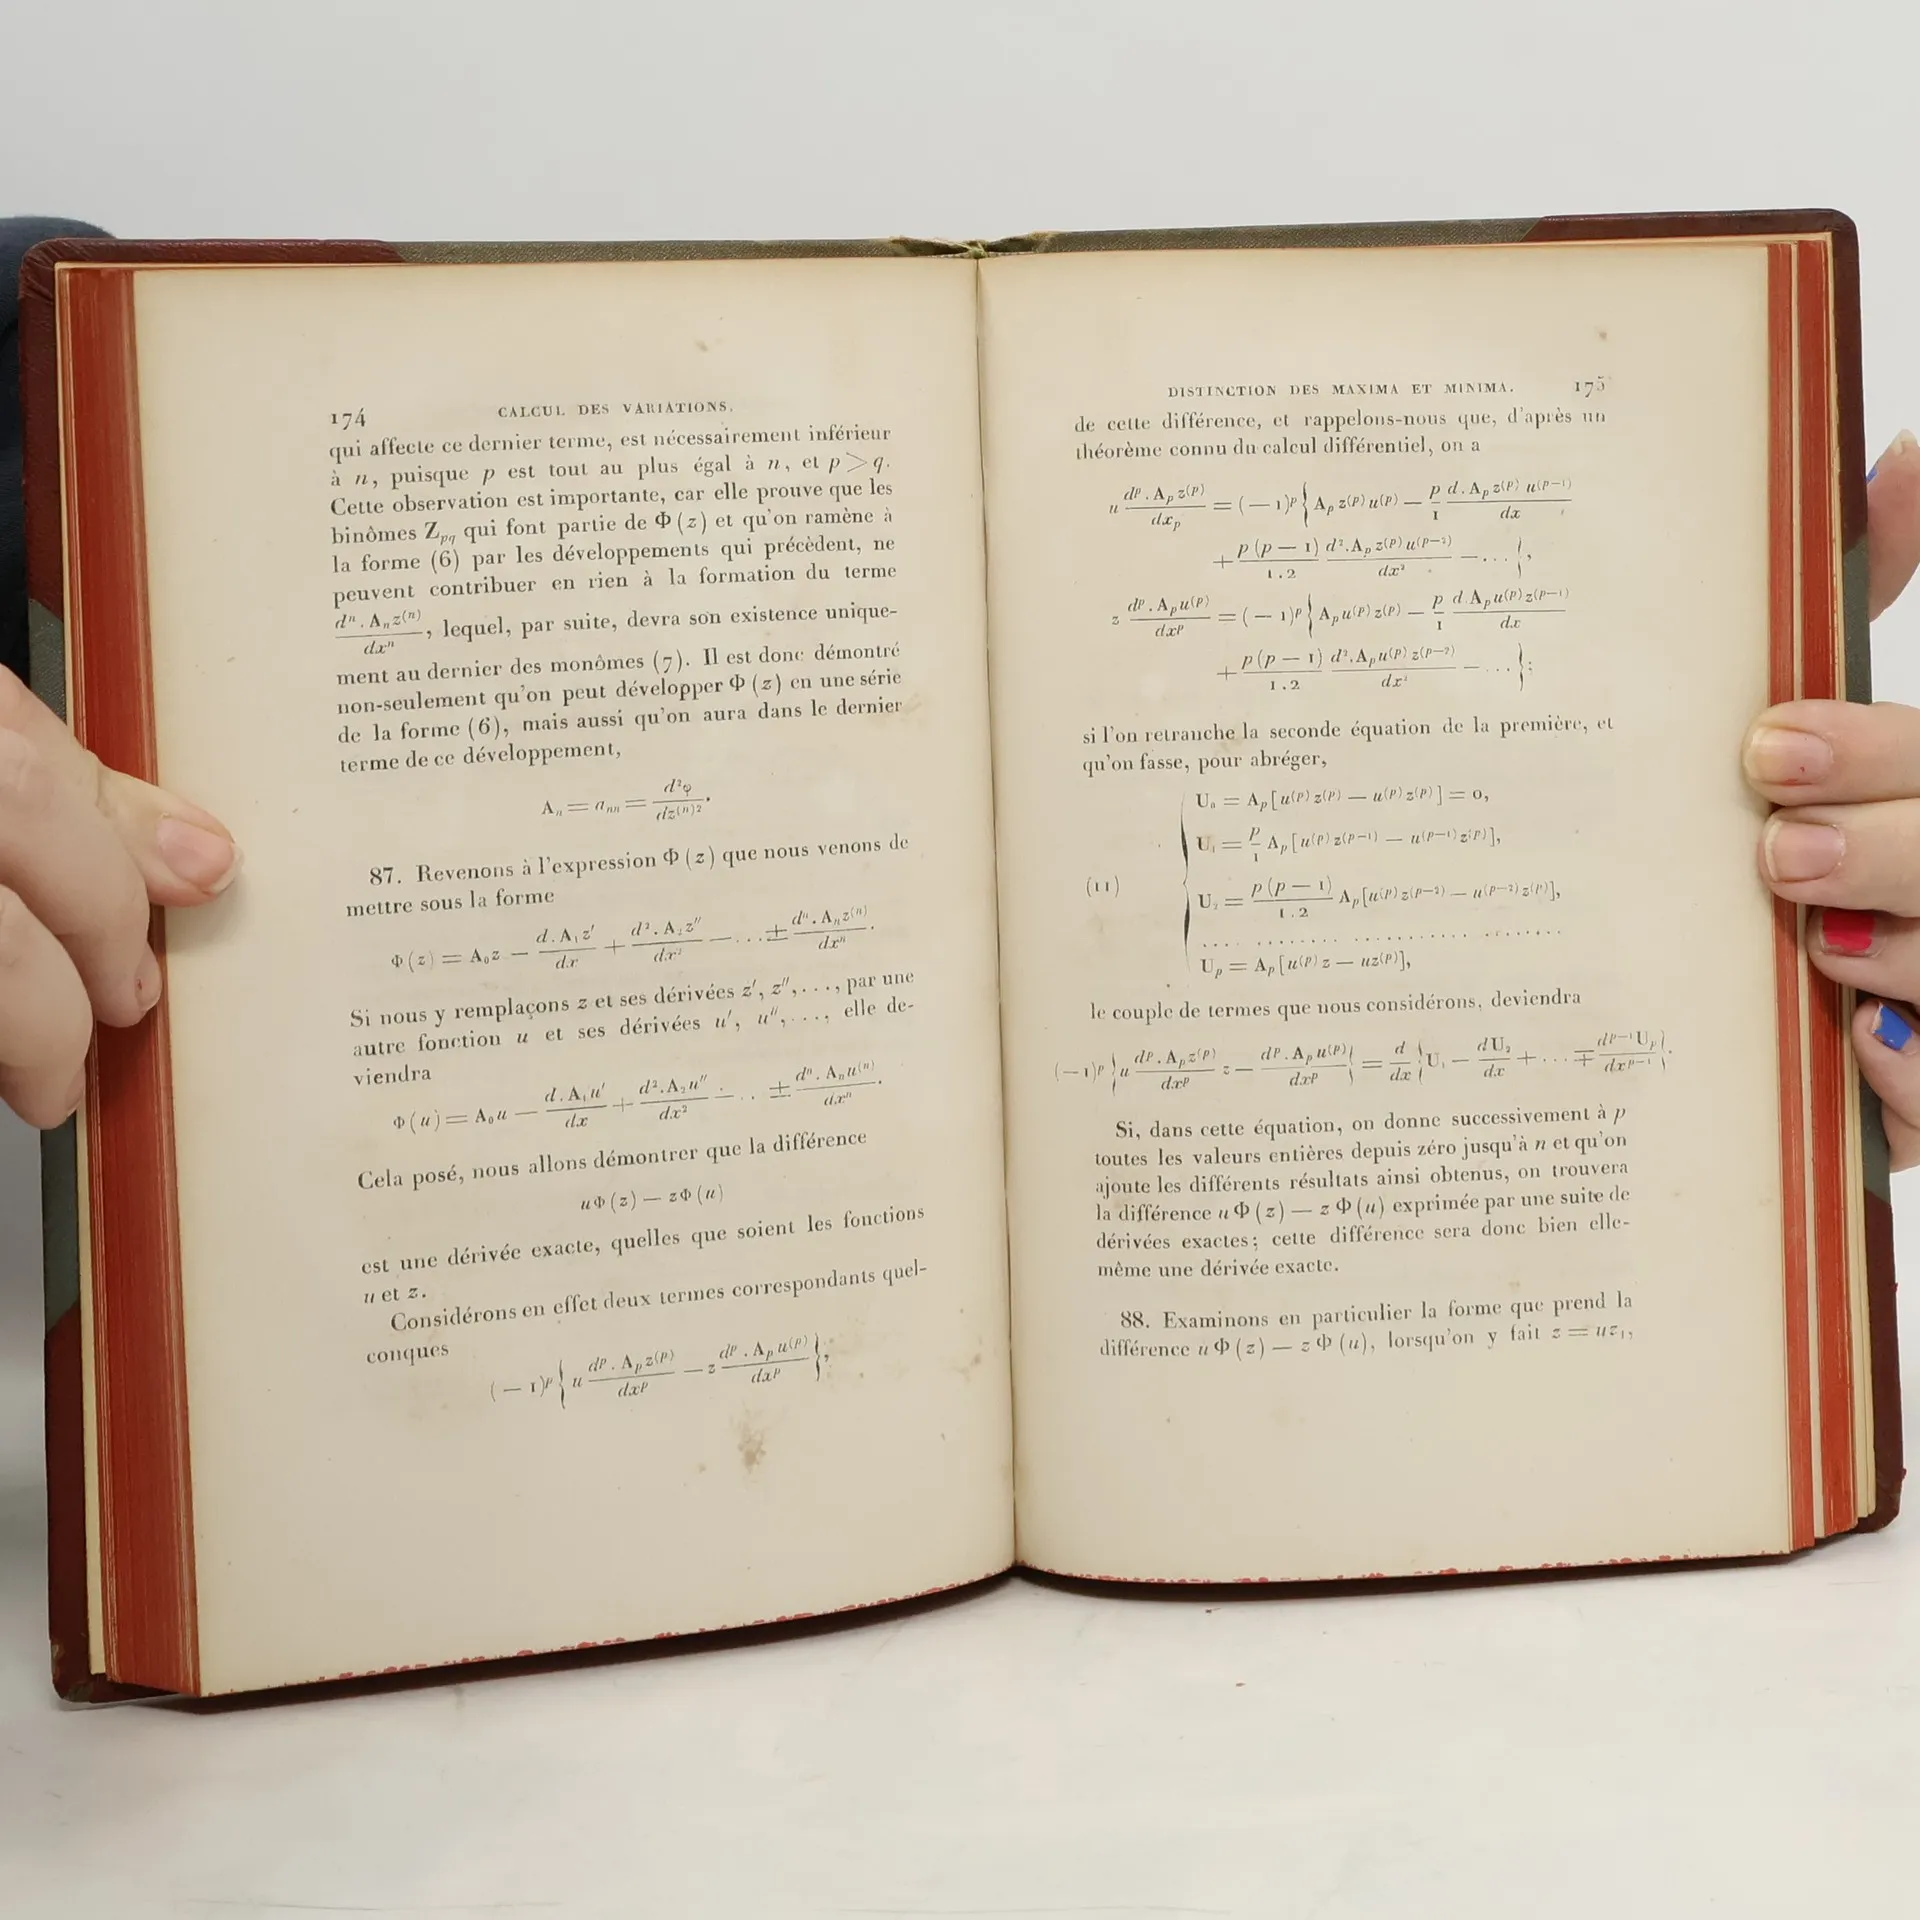 174 CALCUL DES VARIATIONS.
qui affecte ce dernier terme, est nécessairement inférieur
à n, puisque p est tout au plus égal à n, et p > q.
Cette observation est importante, car elle prouve que les
binômes Z_{pq} qui font partie de Φ (z) et qu'on ramène à
la forme (6) par les développements qui précèdent, ne
peuvent contribuer en rien à la formation du terme
\frac{d^n . A_n z^{(n)}}{dx^n}, lequel, par suite, devra son existence unique-
ment au dernier des monômes (7). Il est donc démontré
non-seulement qu'on peut développer Φ (z) en une série
de la forme (6), mais aussi qu'on aura dans le dernier
terme de ce développement,
A_n = a_{nn} = \frac{d^2 φ}{dz^{(n)2}}.
87. Revenons à l'expression Φ (z) que nous venons de
mettre sous la forme
Φ (z) = A_0 z − \frac{d . A_1 z'}{dx} + \frac{d^2 . A_2 z''}{dx^2} − ... ± \frac{d^n . A_n z^{(n)}}{dx^n}.
Si nous y remplaçons z et ses dérivées z', z'',..., par une
autre fonction u et ses dérivées u', u'',..., elle de-
viendra
Φ (u) = A_0 u − \frac{d . A_1 u'}{dx} + \frac{d^2 . A_2 u''}{dx^2} − ... ± \frac{d^n . A_n u^{(n)}}{dx^n}.
Cela posé, nous allons démontrer que la différence
u Φ (z) − z Φ (u)
est une dérivée exacte, quelles que soient les fonctions
u et z.
Considérons en effet deux termes correspondants quel-
conques
(−1)^p { u \frac{d^p . A_p z^{(p)}}{dx^p} − z \frac{d^p . A_p u^{(p)}}{dx^p} },
DISTINCTION DES MAXIMA ET MINIMA. 175
de cette différence, et rappelons-nous que, d'après un
théorème connu du calcul différentiel, on a
u \frac{d^p . A_p z^{(p)}}{dx_p} = (−1)^p { A_p z^{(p)} u^{(p)} − \frac{p}{1} \frac{d . A_p z^{(p)} u^{(p−1)}}{dx}
+ \frac{p (p − 1)}{1.2} \frac{d^2 . A_p z^{(p)} u^{(p−2)}}{dx^2} − ... },
z \frac{d^p . A_p u^{(p)}}{dx^p} = (−1)^p { A_p u^{(p)} z^{(p)} − \frac{p}{1} \frac{d . A_p u^{(p)} z^{(p−1)}}{dx}
+ \frac{p (p − 1)}{1.2} \frac{d^2 . A_p u^{(p)} z^{(p−2)}}{dx^2} − ... };
si l'on retranche la seconde équation de la première, et
qu'on fasse, pour abréger,
U_0 = A_p [u^{(p)} z^{(p)} − u^{(p)} z^{(p)}] = 0,
U_1 = \frac{p}{1} A_p [u^{(p)} z^{(p−1)} − u^{(p−1)} z^{(p)}],
(11) U_2 = \frac{p (p − 1)}{1.2} A_p [u^{(p)} z^{(p−2)} − u^{(p−2)} z^{(p)}],
.... ........ ........... ........
U_p = A_p [u^{(p)} z − u z^{(p)}],
le couple de termes que nous considérons, deviendra
(−1)^p { u \frac{d^p . A_p z^{(p)}}{dx^p} z − \frac{d^p . A_p u^{(p)}}{dx^p} } = \frac{d}{dx} { U_1 − \frac{d U_2}{dx} + ... ∓ \frac{d^{p−1} U_p}{dx^{p−1}} }.
Si, dans cette équation, on donne successivement à p
toutes les valeurs entières depuis zéro jusqu'à n et qu'on
ajoute les différents résultats ainsi obtenus, on trouvera
la différence u Φ (z) − z Φ (u) exprimée par une suite de
dérivées exactes; cette différence sera donc bien elle-
même une dérivée exacte.
88. Examinons en particulier la forme que prend la
différence u Φ (z) − z Φ (u), lorsqu'on y fait z = uz_1,